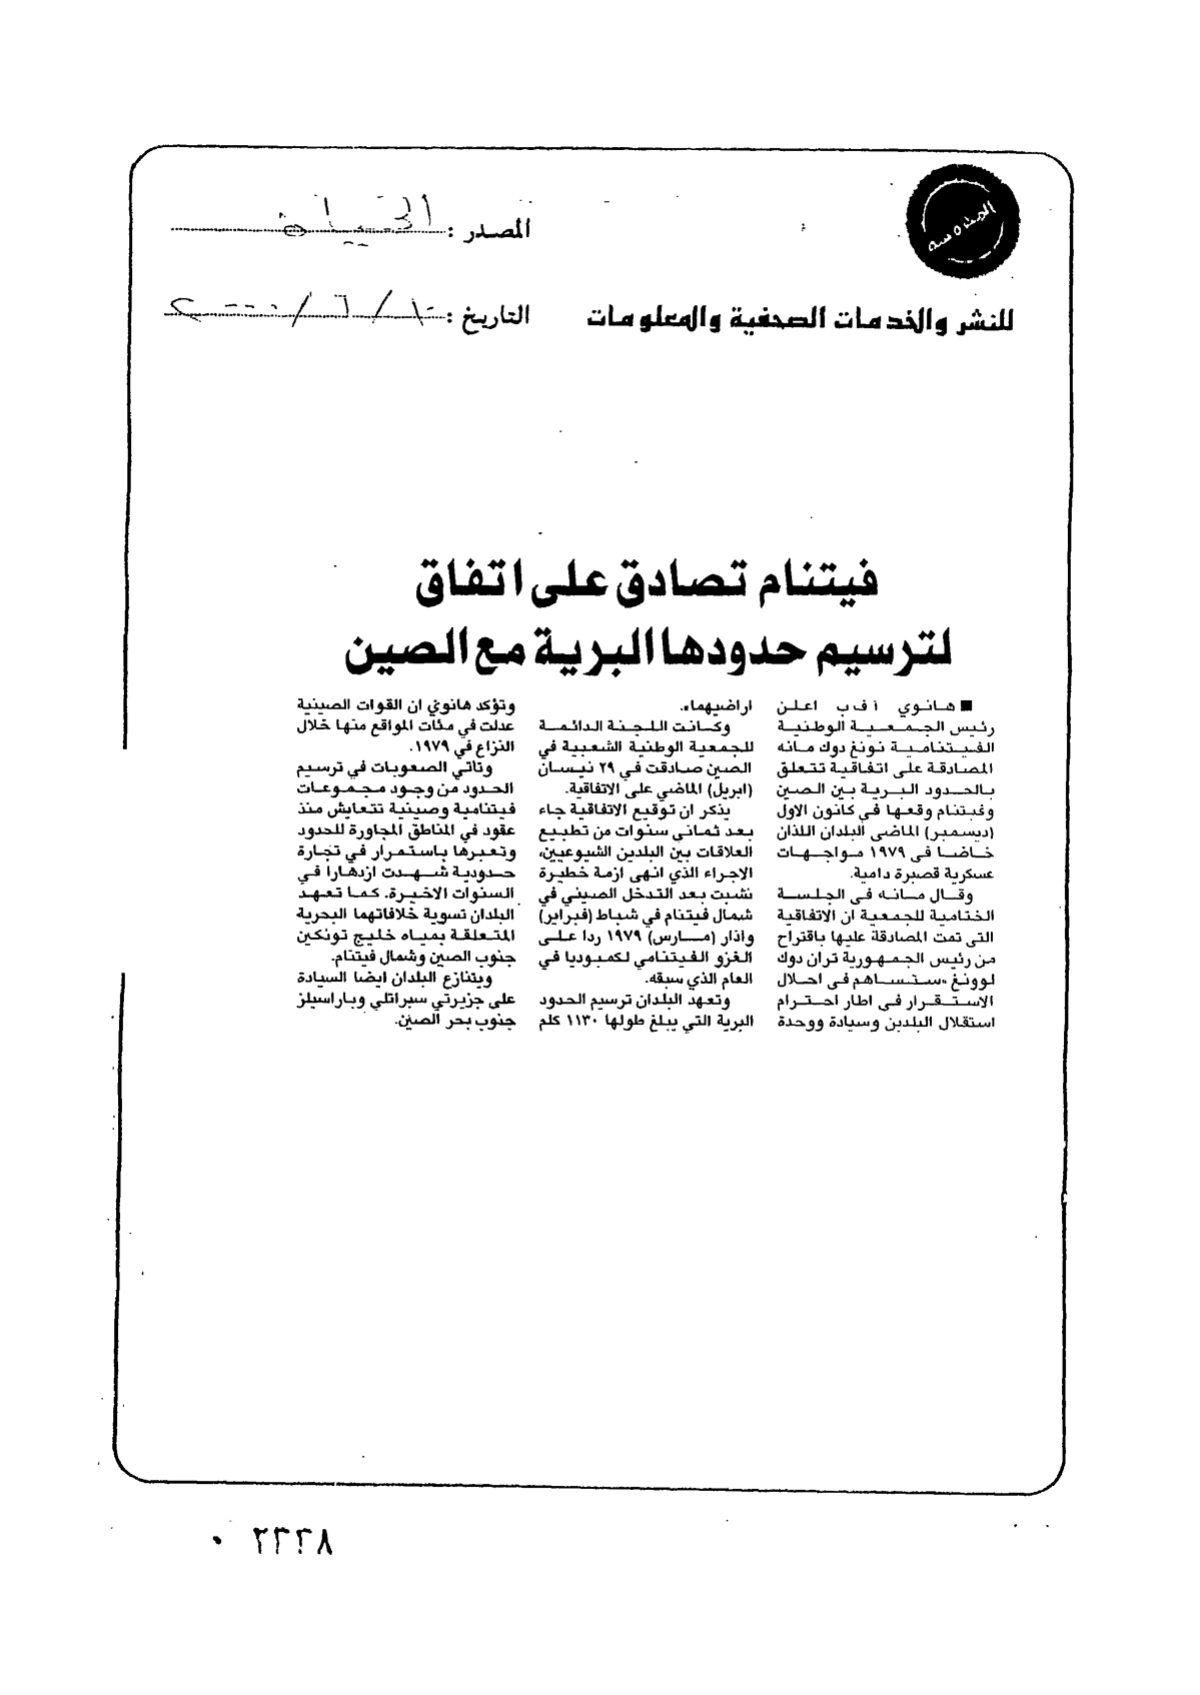 المصدر : الحياة
للنشر والخدمات الصحفية والمعلومات
التاريخ : ١٠ / ٦ / ٢٠٠٠
فيتنام تصادق على اتفاق
لترسيم حدودها البرية مع الصين
■ هانوي أ ف ب اعلن
رئيس الجمعية الوطنية
الفيتنامية نونغ دوك مانه
المصادقة على اتفاقية تتعلق
بالحدود البرية بين الصين
وفيتنام وقعها في كانون الاول
(ديسمبر) الماضي البلدان اللذان
خاضا في ١٩٧٩ مواجهات
عسكرية قصيرة دامية.
وقال مانه في الجلسة
الختامية للجمعية ان الاتفاقية
التي تمت المصادقة عليها باقتراح
من رئيس الجمهورية تران دوك
لوونغ «ستساهم في احلال
الاستقرار في اطار احترام
استقلال البلدين وسيادة ووحدة
اراضيهما».
وكانت اللجنة الدائمة
للجمعية الوطنية الشعبية في
الصين صادقت في ٢٩ نيسان
(ابريل) الماضي على الاتفاقية.
يذكر ان توقيع الاتفاقية جاء
بعد ثماني سنوات من تطبيع
العلاقات بين البلدين الشيوعيين،
الاجراء الذي انهى ازمة خطيرة
نشبت بعد التدخل الصيني في
شمال فيتنام في شباط (فبراير)
واذار (مارس) ١٩٧٩ ردا على
الغزو الفيتنامي لكمبوديا في
العام الذي سبقه.
وتعهد البلدان ترسيم الحدود
البرية التي يبلغ طولها ١١٣٠ كلم
وتؤكد هانوي ان القوات الصينية
عدلت في مئات المواقع منها خلال
النزاع في ١٩٧٩.
وتاتي الصعوبات في ترسيم
الحدود من وجود مجموعات
فيتنامية وصينية تتعايش منذ
عقود في المناطق المجاورة للحدود
وتعبرها باستمرار في تجارة
حدودية شهدت ازدهارا في
السنوات الاخيرة. كما تعهد
البلدان تسوية خلافاتهما البحرية
المتعلقة بمياه خليج تونكين
جنوب الصين وشمال فيتنام.
ويتنازع البلدان ايضا السيادة
على جزيرتي سبراتلي وباراسيلز
جنوب بحر الصين.
٠ ٢٣٣٨